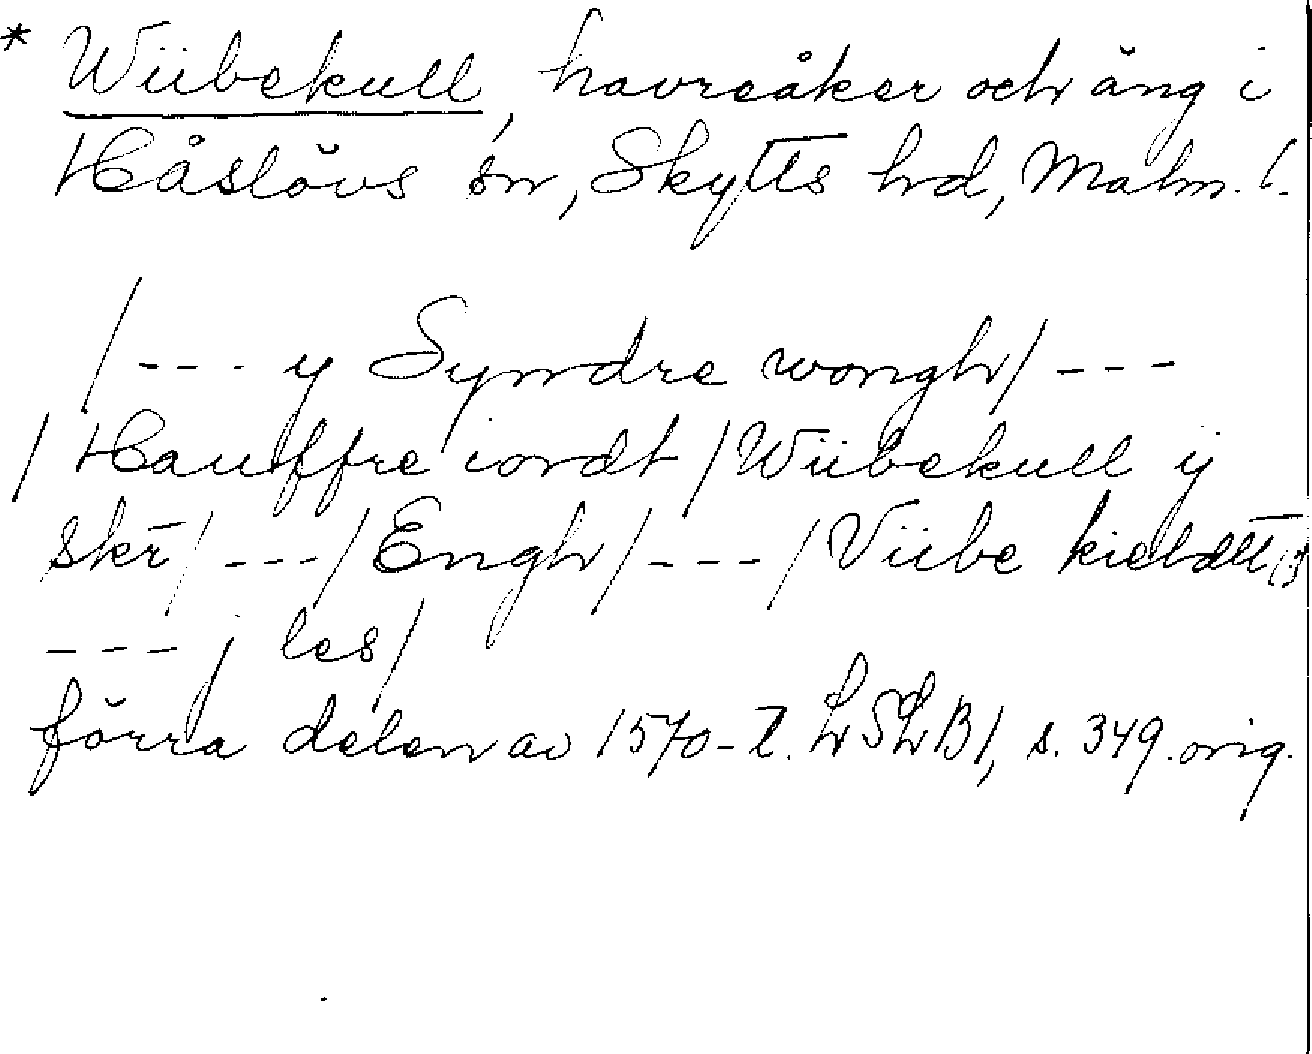 * Wiibekull, havreåker och äng i
Håslövs sn, Skytts hd, Malm. l.
/--- y Syndre wongh/ ---
/ Hauffre iordt / Wiibekull ij
skr̄/ ---/ Engh/ --- / Viibe kieldtt
--- j les/
förra delen av 1570-t. LSLB 1, s. 349. orig.